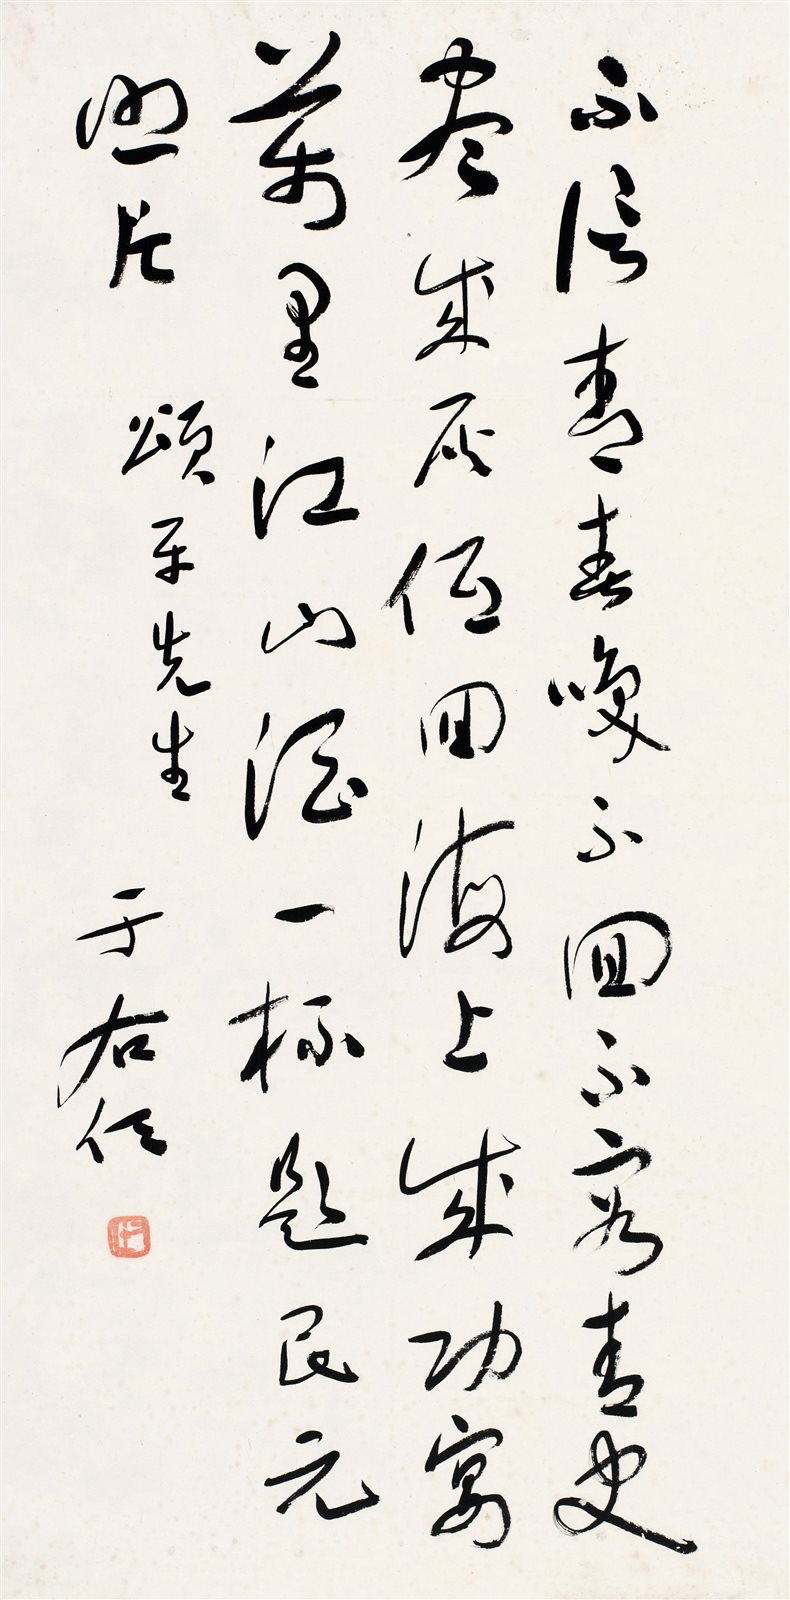 不信青春喚不回不容青史
盡成灰低回海上成功宴
萬里江山酒一杯題民元
照片
頌平先生
于右任